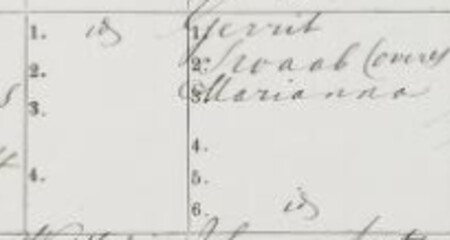 1. id
2.
3.
4.
1. Gerrit
2. Swaab (overl
3. Marianna
4.
5.
6. id